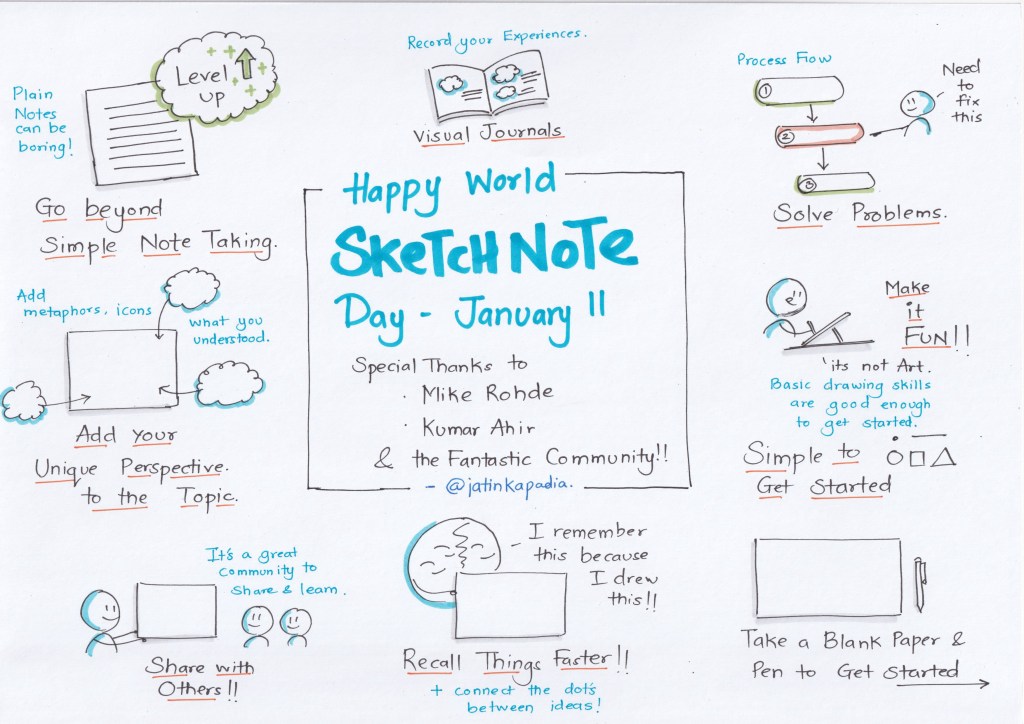 Plain
Notes
can be
boring!
Level
up
Go beyond
Simple Note Taking.
Record your Experiences.
Visual Journals
Process Flow
1
2
3
Need
to
fix
this
Solve Problems.
Happy World
SKETCHNOTE
Day - January 11
Special Thanks to
· Mike Rohde
· Kumar Ahir
& the Fantastic Community!!
- @jatinkapadia.
Add
metaphors, icons
what you
understood.
Add your
Unique Perspective.
to the Topic.
Make
it
FUN!!
'its not Art.
Basic drawing skills
are good enough
to get started.
Simple to
Get Started
It's a great
Community to
Share & learn.
Share with
Others!!
- I remember
this because
I drew
this!!
Recall Things Faster!!
+ connect the dot's
between ideas!
Take a Blank Paper &
Pen to Get Started